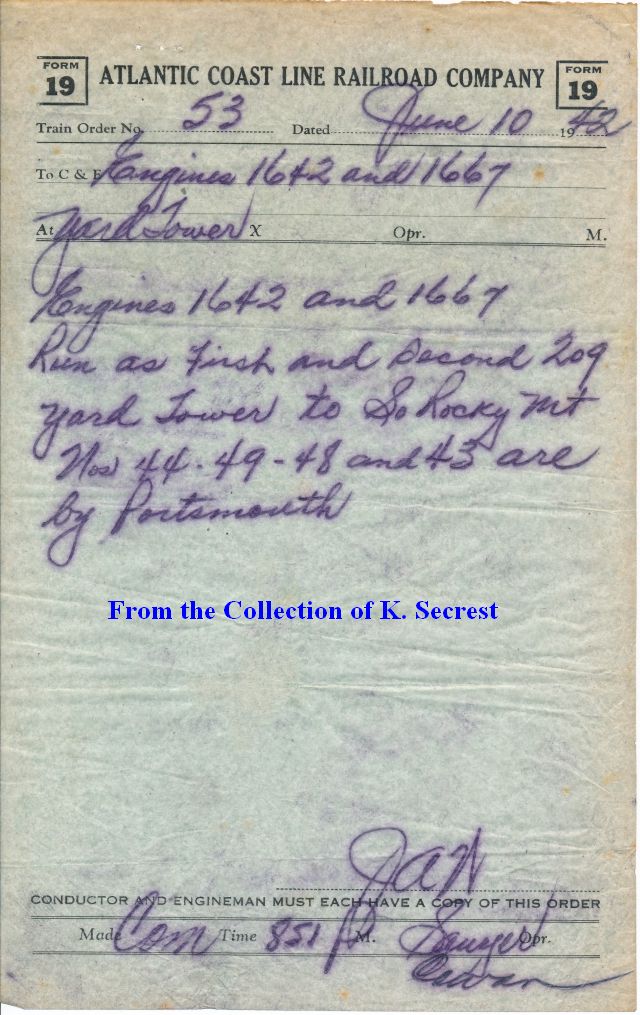 FORM 19 ATLANTIC COAST LINE RAILROAD COMPANY FORM 19
Train Order No. 53 Dated June 10 1942
To C & E Engines 1642 and 1667
At Yard Tower X Opr. M.
Engines 1642 and 1667
Run as First and Second 209
Yard Tower to So Rocky Mt
Nos 44-49-48 and 43 are
by Portsmouth
From the Collection of K. Secrest
CONDUCTOR AND ENGINEMAN MUST EACH HAVE A COPY OF THIS ORDER
Made Com Time 851 P M. Sawyer Opr.